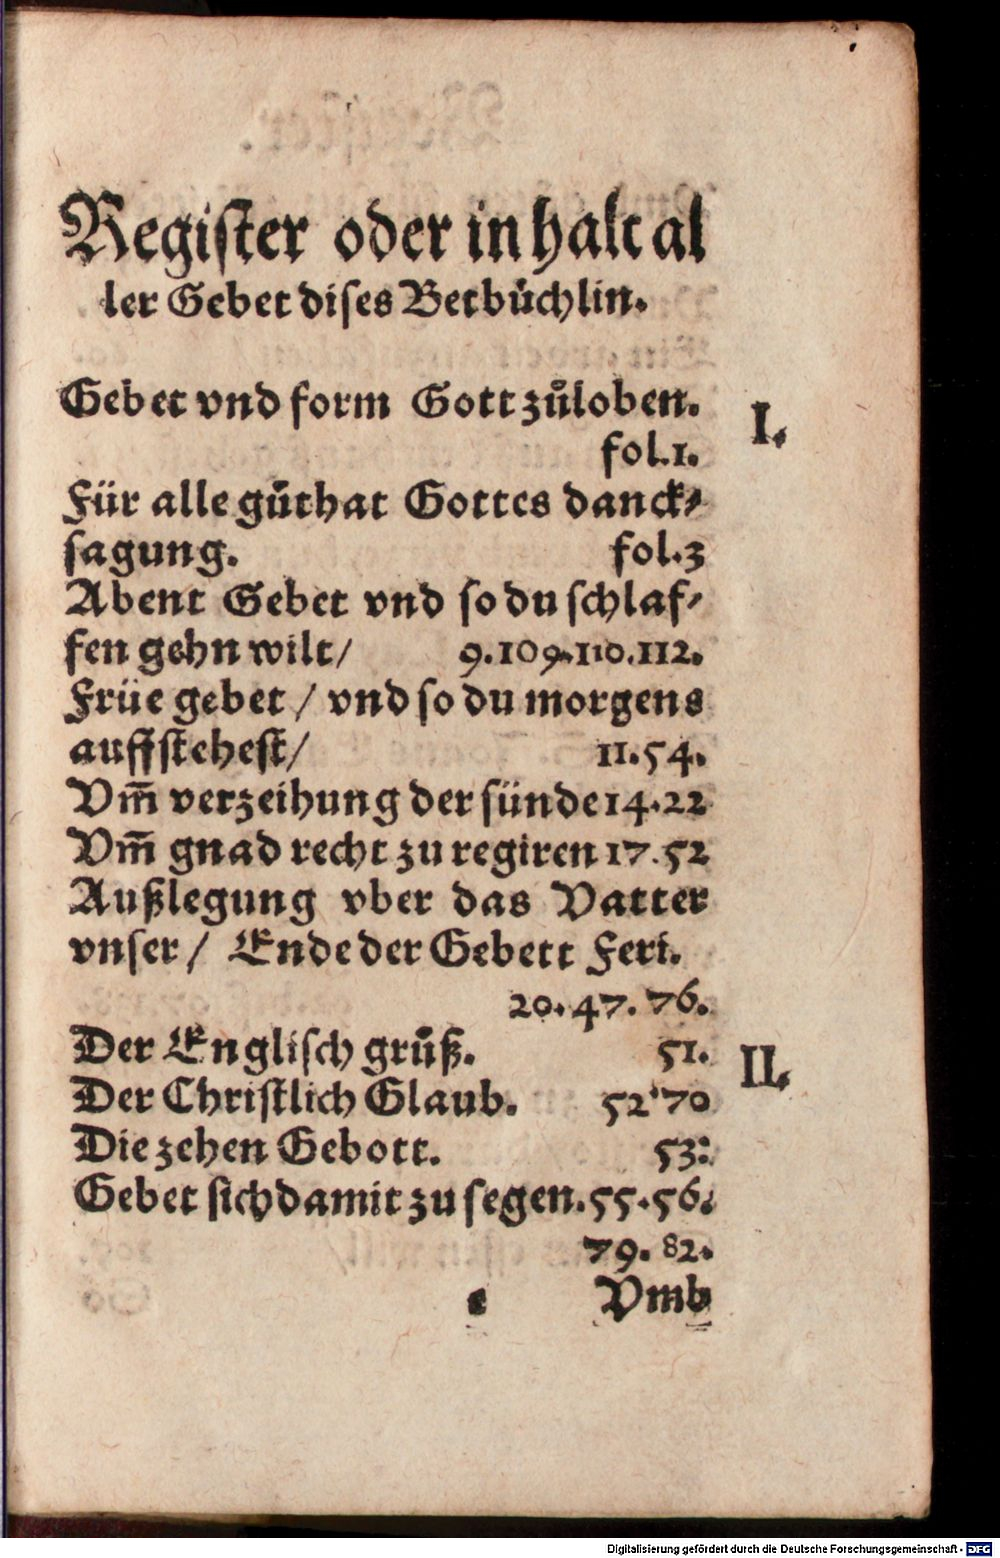 Regiſter oder inhalt al
ler Gebet diſes Betbuͤchlin.
Gebet vnd form Gott zuͦloben.
I.
fol.1.
Für alle guͤthat Gottes danck⸗
ſagung. fol.3
Abent Gebet vnd ſo du ſchlaf⸗
fen gehn wilt/ 9.109.110.112.
Früe gebet / vnd ſo du morgens
auffſteheſt/ 11.54.
Vm̅ verzeihung der ſünde 14.22
Vm̅ gnad recht zu regiren 17.52
Außlegung vber das Vatter
vnſer / Ende der Gebett Feri.
20.47.76.
Der Engliſch gruͦß. 51.
II.
Der Chriſtlich Glaub. 52.70
Die zehen Gebott. 53:
Gebet ſich damit zu ſegen.55.56.
79.82.
Vmb
Digitalisierung gefördert durch die Deutsche Forschungsgemeinschaft - DFG